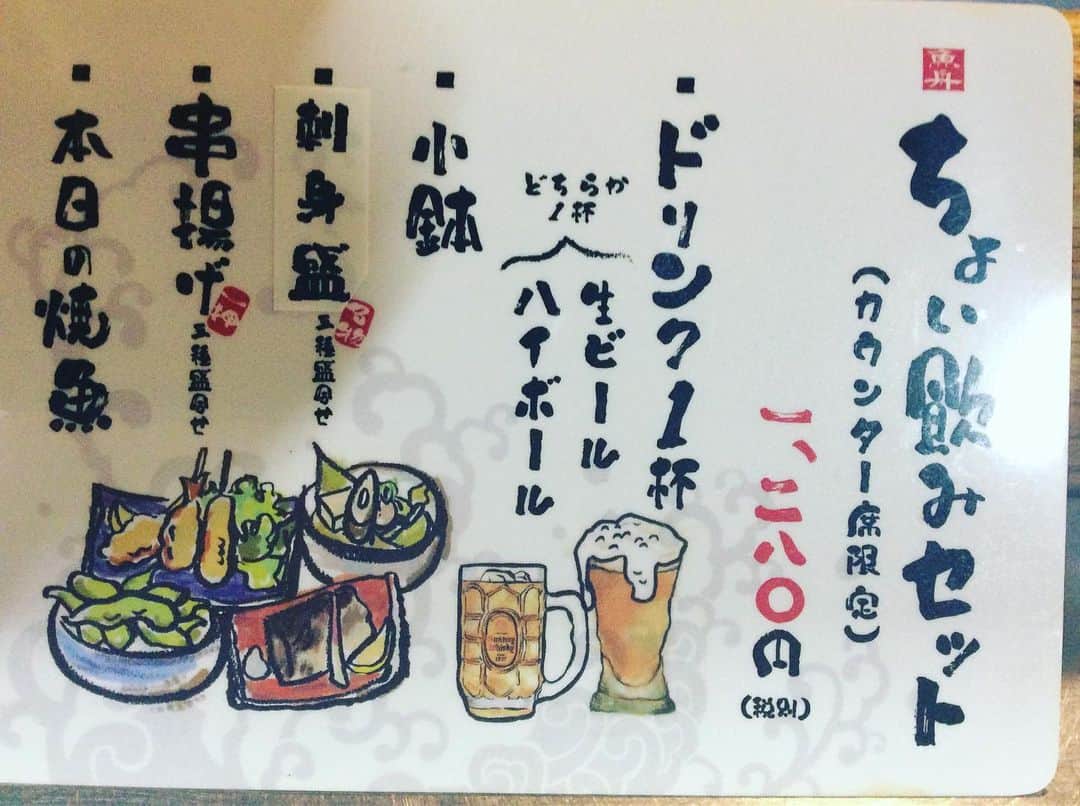 魚丼
ちょい飲みセット
(カウンター席限定)
一、二八〇円
(税別)
■ドリンク1杯
どちらか
1杯
生ビール
ハイボール
■小鉢
■刺身盛
三種盛合せ
■串揚げ
三種盛合せ
■本日の焼魚